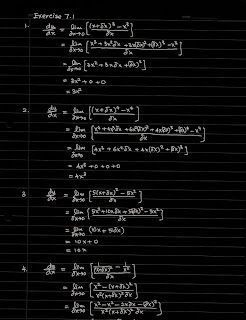 Exercise 7.1
1. dy/dx = lim δx→0 [((x+δx)³ - x³)/δx]
= lim δx→0 [(x³ + 3x²δx + 3x(δx)² + (δx)³ - x³)/δx]
= lim δx→0 [3x² + 3xδx + (δx)²]
= 3x² + 0 + 0
= 3x²
2. dy/dx = lim δx→0 [((x+δx)⁴ - x⁴)/δx]
= lim δx→0 [(x⁴ + 4x³δx + 6x²(δx)² + 4x(δx)³ + (δx)⁴ - x⁴)/δx]
= lim δx→0 [4x³ + 6x²δx + 4x(δx)² + (δx)³]
= 4x³ + 0 + 0 + 0
= 4x³
3. dy/dx = lim δx→0 [(5(x+δx)² - 5x²)/δx]
= lim δx→0 [(5x² + 10xδx + 5(δx)² - 5x²)/δx]
= lim δx→0 (10x + 5δx)
= 10x + 0
= 10x
4. dy/dx = lim δx→0 [(1/(x+δx)² - 1/x²)/δx]
= lim δx→0 [(x² - (x+δx)²)/(x²(x+δx)² δx)]
= lim δx→0 [(x² - x² - 2xδx - (δx)²)/(x²(x+δx)² δx)]